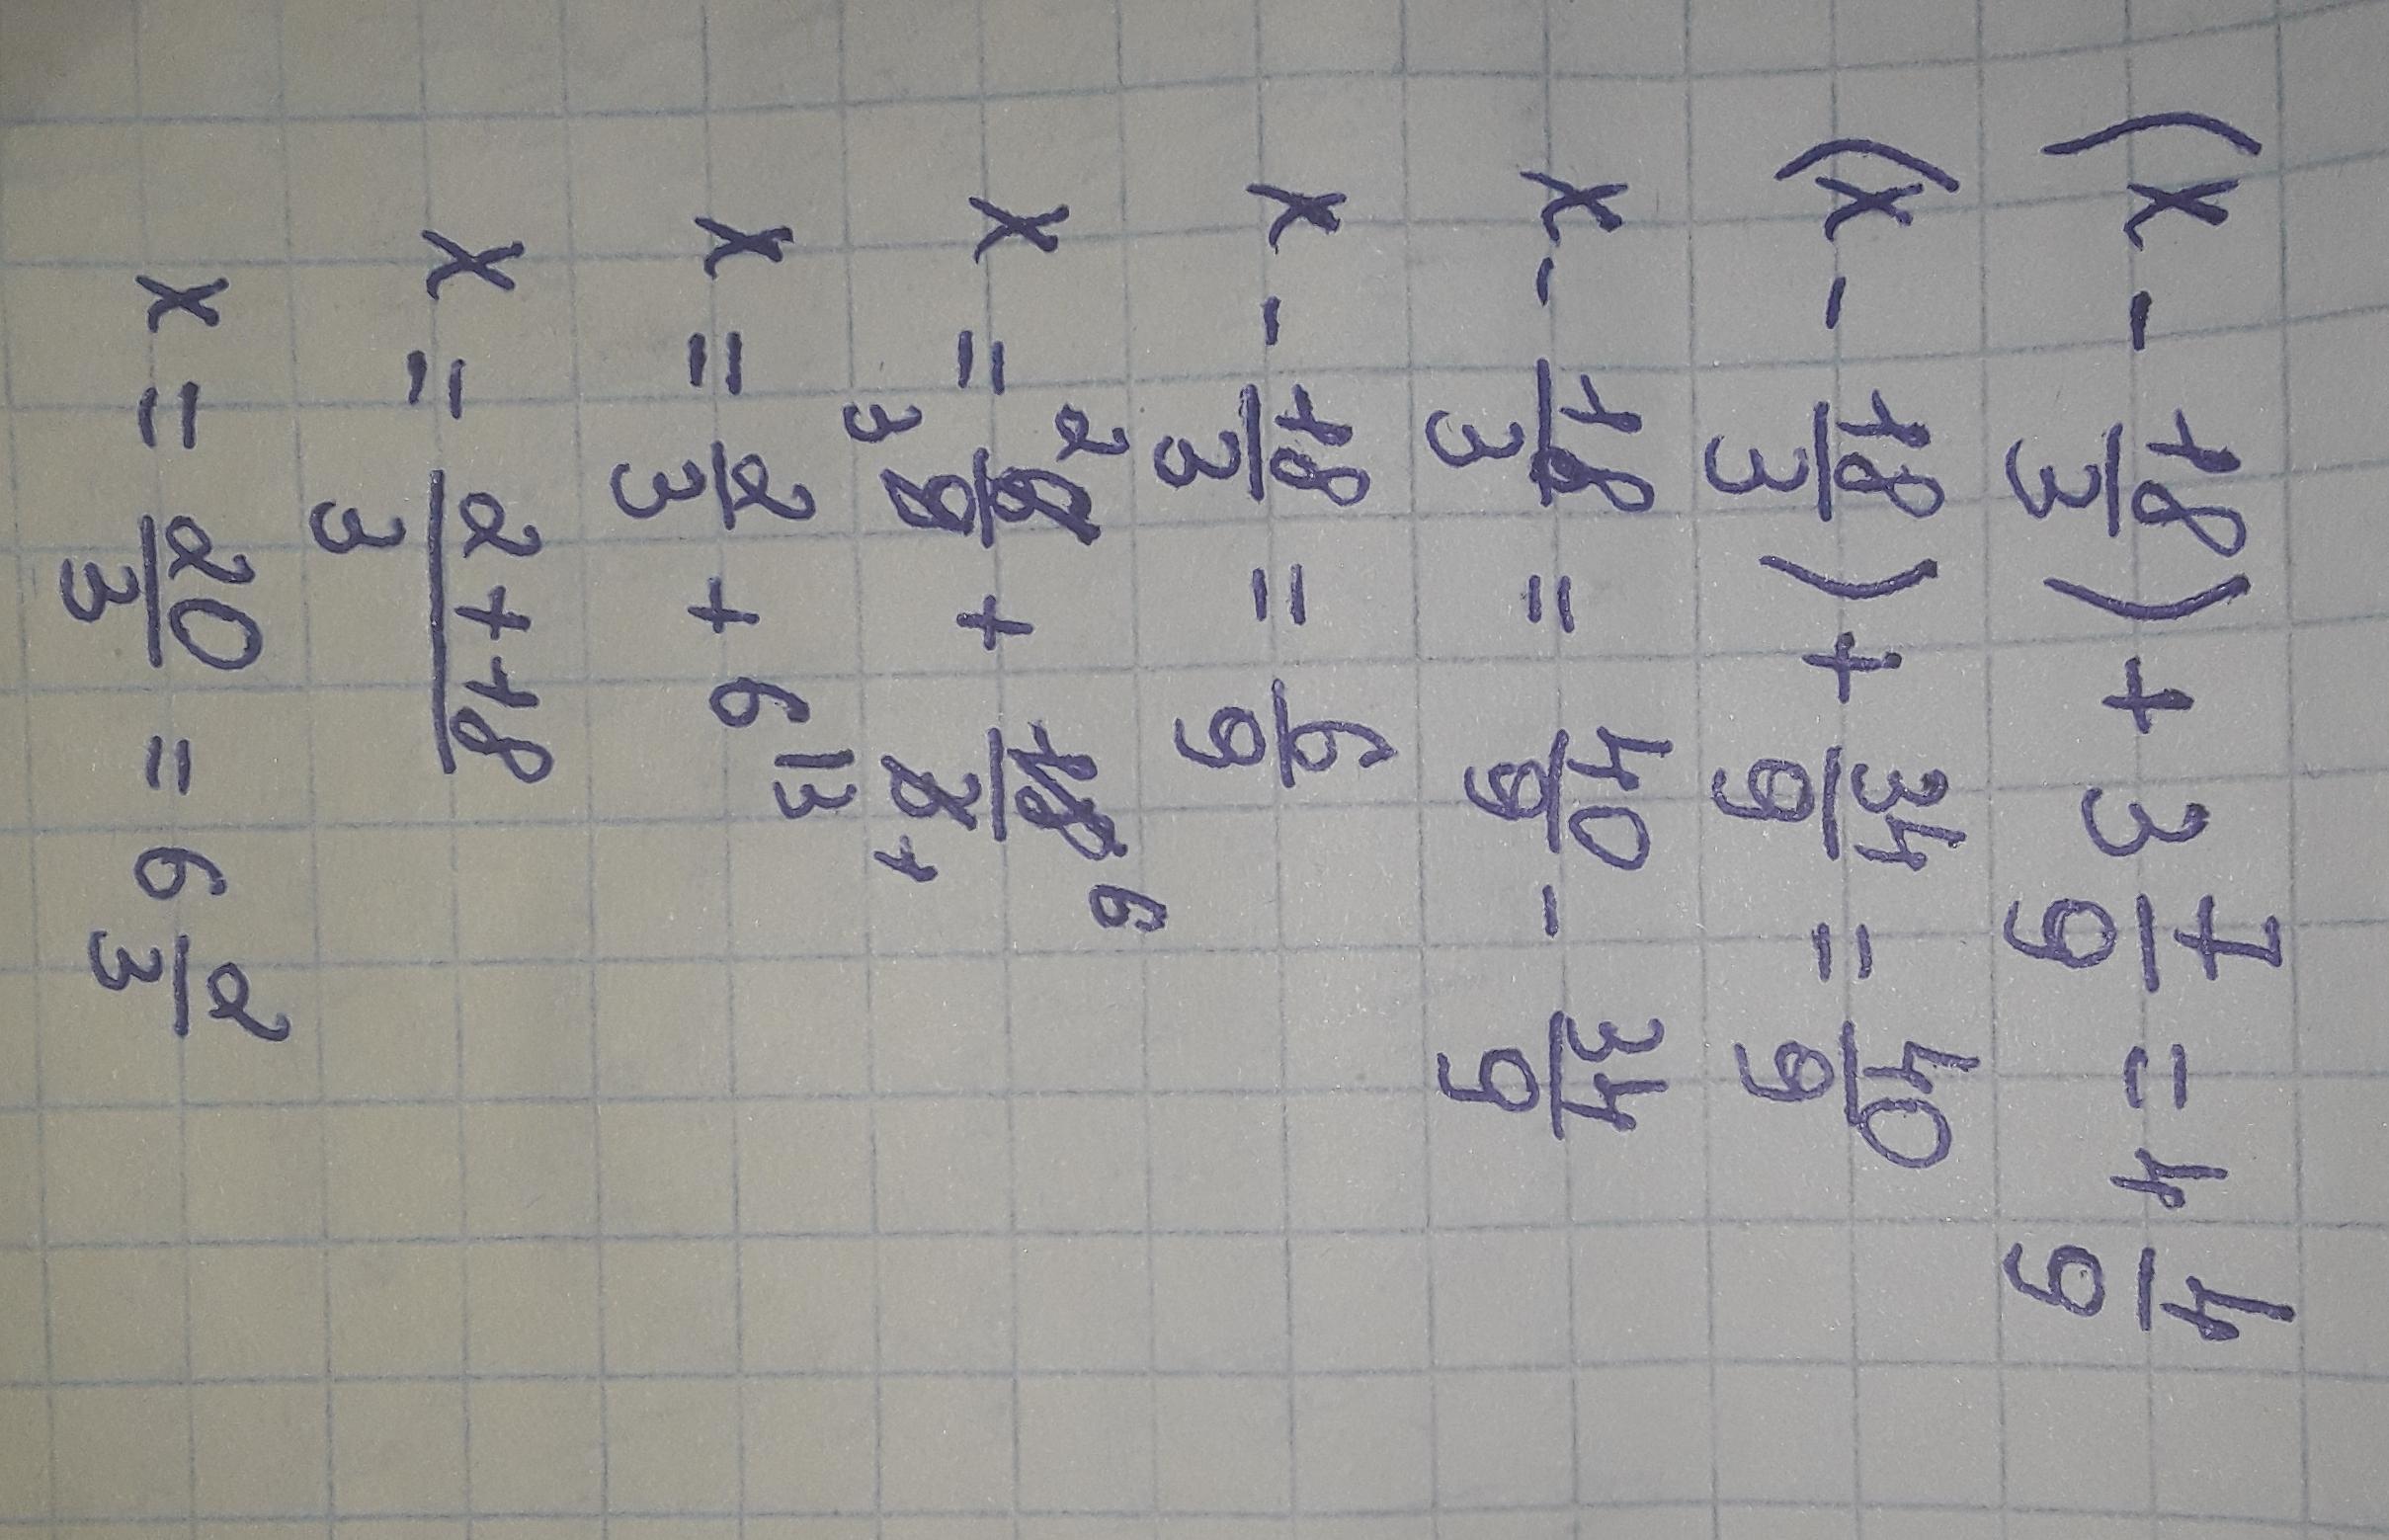 (x - 18/3) + 3 7/9 = 4 4/9
(x - 18/3) + 34/9 = 40/9
x - 18/3 = 40/9 - 34/9
x - 18/3 = 6/9
x = 6/9 2/3 + 18/3 6/1
x = 2/3 + 6 |3
x = (2 + 18)/3
x = 20/3 = 6 2/3